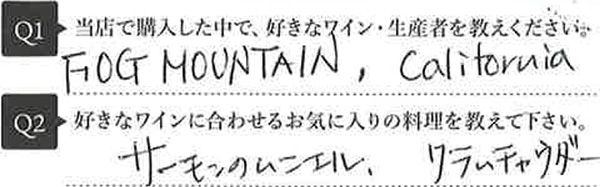 Q1 当店で購入した中で、好きなワイン・生産者を教えください。
FOG MOUNTAIN, California
Q2 好きなワインに合わせるお気に入りの料理を教えて下さい。
サーモンのムニエル、クラムチャウダー